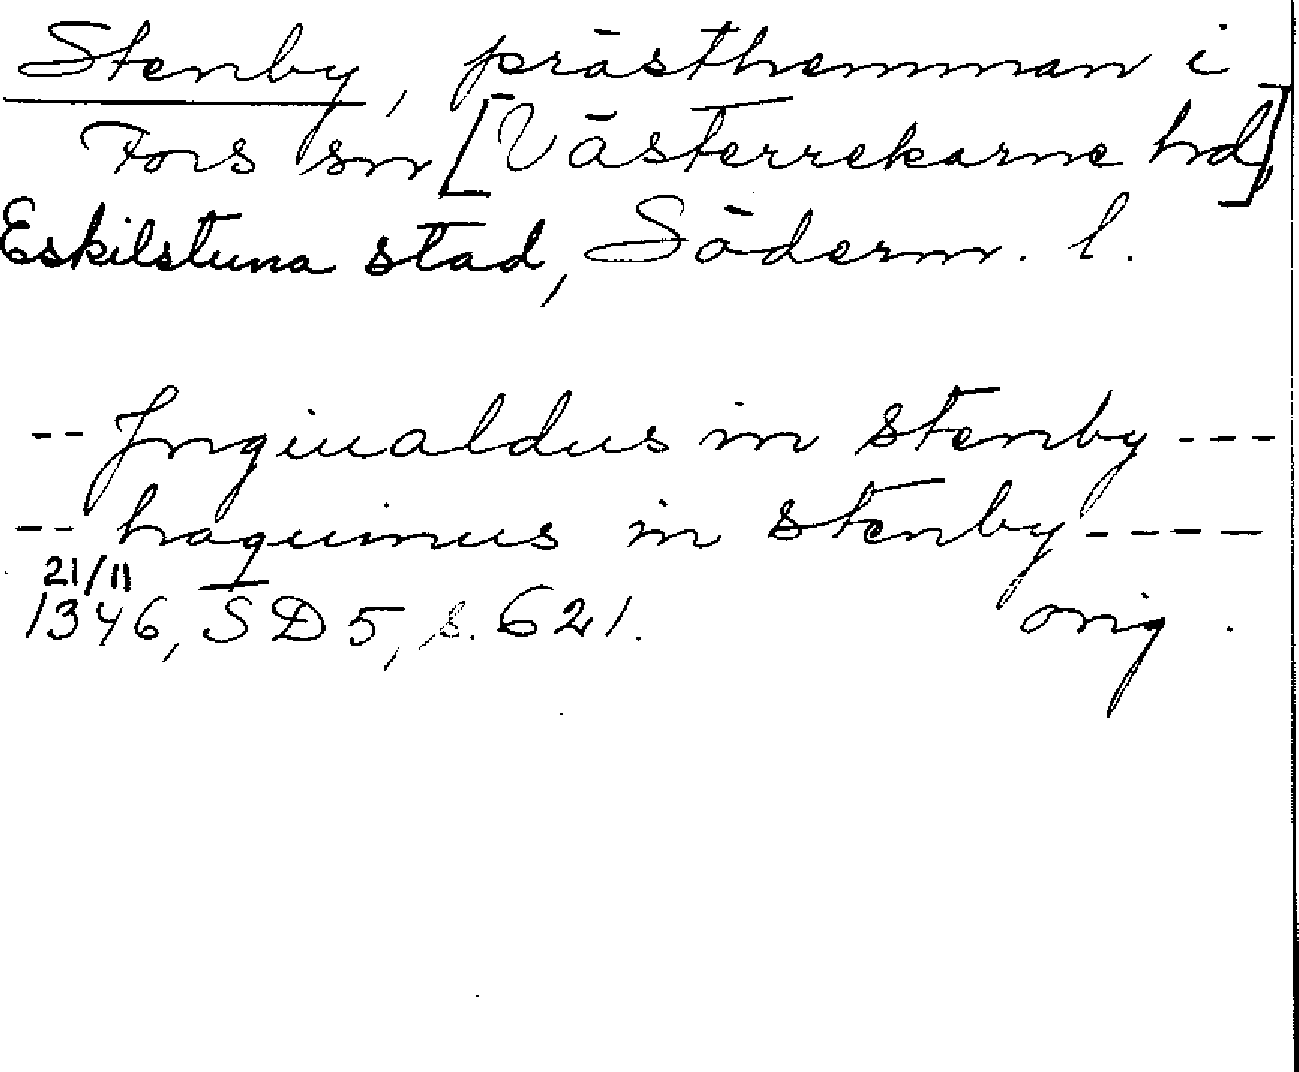 Stenby, prästhemman i
Fors sn [Västerrekarne hd]
Eskilstuna stad, Söderm. l.
-- Jngiualdus in stenby ---
-- haquinus in stenby ----
21/11
1346, SD 5, s. 621. orig.